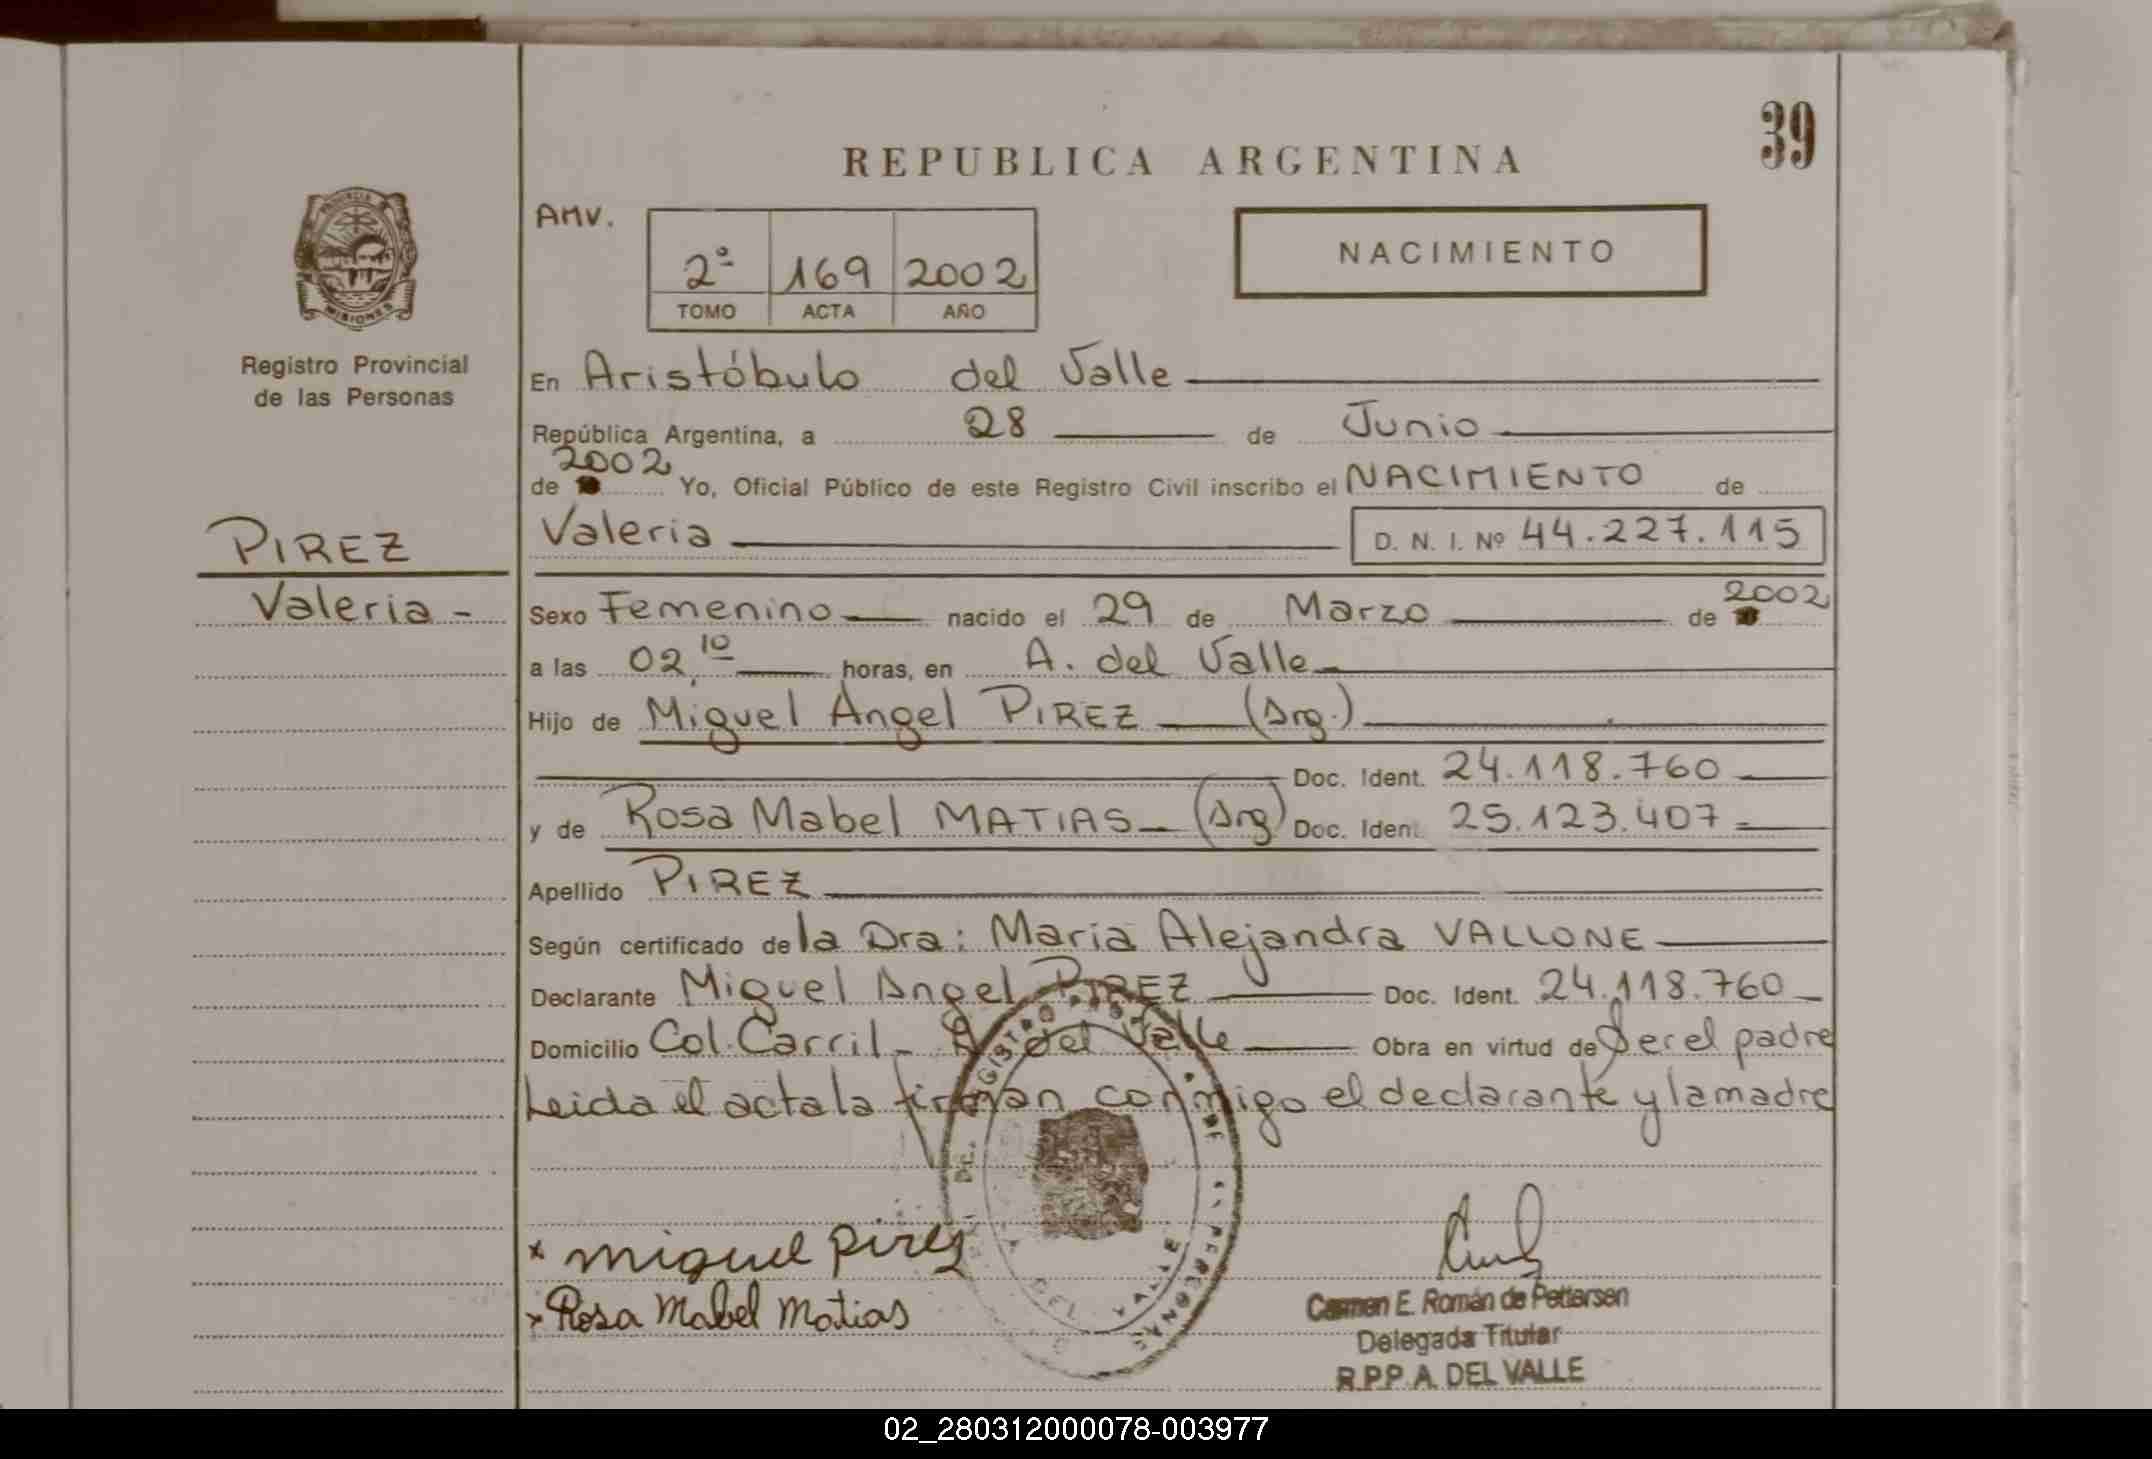 39
REPUBLICA ARGENTINA
PROVINCIA
MISIONES
Registro Provincial
de las Personas
AMV.
2º 169 2002
TOMO ACTA AÑO
NACIMIENTO
En Aristóbulo del Valle
República Argentina, a 28 de Junio
2002
de Yo, Oficial Público de este Registro Civil inscribo el NACIMIENTO de
PIREZ
Valeria -
Valeria D. N. I. Nº 44.227.115
Sexo Femenino nacido el 29 de Marzo de 2002
a las 02,10 horas, en A. del Valle
Hijo de Miguel Angel PIREZ (Arg.)
Doc. Ident. 24.118.760
y de Rosa Mabel MATIAS (Arg) Doc. Ident. 25.123.407
Apellido PIREZ
Según certificado de la Dra: Maria Alejandra VALLONE
Declarante Miguel Angel PIREZ Doc. Ident. 24.118.760
Domicilio Col. Carril - A. del Valle Obra en virtud de Ser el padre
Leida el acta la firman conmigo el declarante y la madre
x miguel pirez
x Rosa Mabel Matias
Carmen E. Román de Pettersen
Delegada Titular
R.P.P. A. DEL VALLE
02_280312000078-003977